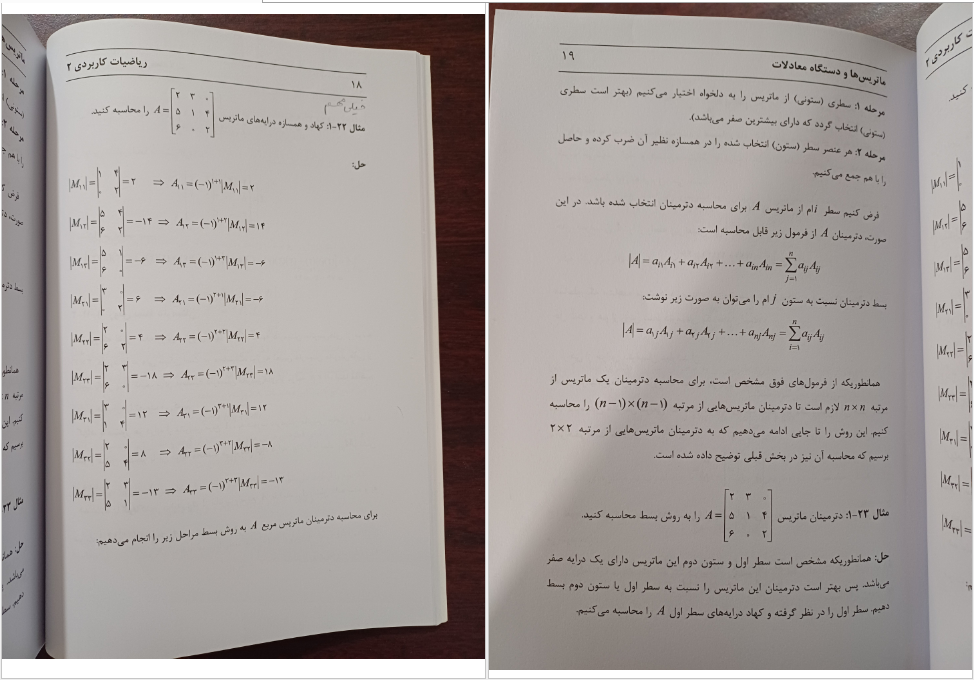 ریاضیات کاربردی ۲
۱۸
مثال ۲۲-۱: کهاد و همسازه درایه‌های ماتریس A = [۲ ۳ ۰ ; ۵ ۱ ۴ ; ۶ ۰ ۲] را محاسبه کنید.
حل:
|M₁₁| = |۱ ۴ ; ۰ ۲| = ۲ ⇒ A₁₁ = (−۱)¹⁺¹|M₁₁| = ۲
|M₁₂| = |۵ ۴ ; ۶ ۲| = −۱۴ ⇒ A₁₂ = (−۱)¹⁺²|M₁₂| = ۱۴
|M₁₃| = |۵ ۱ ; ۶ ۰| = −۶ ⇒ A₁₃ = (−۱)¹⁺³|M₁₃| = −۶
|M₂₁| = |۳ ۰ ; ۰ ۲| = ۶ ⇒ A₂₁ = (−۱)²⁺¹|M₂₁| = −۶
|M₂₂| = |۲ ۰ ; ۶ ۲| = ۴ ⇒ A₂₂ = (−۱)²⁺²|M₂₂| = ۴
|M₂₃| = |۲ ۳ ; ۶ ۰| = −۱۸ ⇒ A₂₃ = (−۱)²⁺³|M₂₃| = ۱۸
|M₃₁| = |۳ ۰ ; ۱ ۴| = ۱۲ ⇒ A₃₁ = (−۱)³⁺¹|M₃₁| = ۱۲
|M₃₂| = |۲ ۰ ; ۵ ۴| = ۸ ⇒ A₃₂ = (−۱)³⁺²|M₃₂| = −۸
|M₃₃| = |۲ ۳ ; ۵ ۱| = −۱۳ ⇒ A₃₃ = (−۱)³⁺³|M₃₃| = −۱۳
برای محاسبه دترمینان ماتریس مربع A به روش بسط مراحل زیر را انجام می‌دهیم:
ماتریس‌ها و دستگاه معادلات
۱۹
مرحله ۱: سطری (ستونی) از ماتریس را به دلخواه اختیار می‌کنیم (بهتر است سطری
(ستونی) انتخاب گردد که دارای بیشترین صفر می‌باشد).
مرحله ۲: هر عنصر سطر (ستون) انتخاب شده را در همسازه نظیر آن ضرب کرده و حاصل
را با هم جمع می‌کنیم.
فرض کنیم سطر i ام از ماتریس A برای محاسبه دترمینان انتخاب شده باشد. در این
صورت، دترمینان A از فرمول زیر قابل محاسبه است:
|A| = aᵢ₁Aᵢ₁ + aᵢ₂Aᵢ₂ + ... + aᵢₙAᵢₙ = ∑ⁿⱼ₌₁ aᵢⱼAᵢⱼ
بسط دترمینان نسبت به ستون j ام را می‌توان به صورت زیر نوشت:
|A| = a₁ⱼA₁ⱼ + a₂ⱼA₂ⱼ + ... + aₙⱼAₙⱼ = ∑ⁿᵢ₌₁ aᵢⱼAᵢⱼ
همانطوریکه از فرمول‌های فوق مشخص است، برای محاسبه دترمینان یک ماتریس از
مرتبه n×n لازم است تا دترمینان ماتریس‌هایی از مرتبه (n−۱)×(n−۱) را محاسبه
کنیم. این روش را تا جایی ادامه می‌دهیم که به دترمینان ماتریس‌هایی از مرتبه ۲×۲
برسیم که محاسبه آن نیز در بخش قبلی توضیح داده شده است.
مثال ۲۳-۱: دترمینان ماتریس A = [۲ ۳ ۰ ; ۵ ۱ ۴ ; ۶ ۰ ۲] را به روش بسط محاسبه کنید.
حل: همانطوریکه مشخص است سطر اول و ستون دوم این ماتریس دارای یک درایه صفر
می‌باشد. پس بهتر است دترمینان این ماتریس را نسبت به سطر اول یا ستون دوم بسط
دهیم. سطر اول را در نظر گرفته و کهاد درایه‌های سطر اول A را محاسبه می‌کنیم.